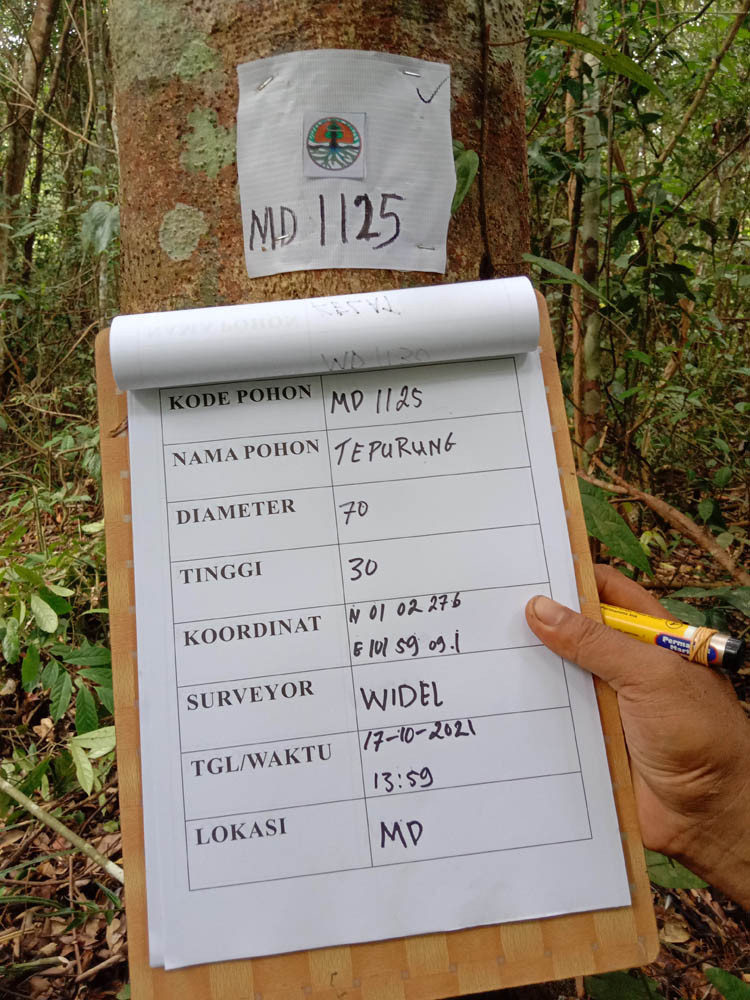 MD 1125
KODE POHON MD 1125
NAMA POHON TEPURUNG
DIAMETER 70
TINGGI 30
KOORDINAT N 01 02 276
E 101 59 09.1
SURVEYOR WIDEL
TGL/WAKTU 17-10-2021
13:59
LOKASI MD
Perma